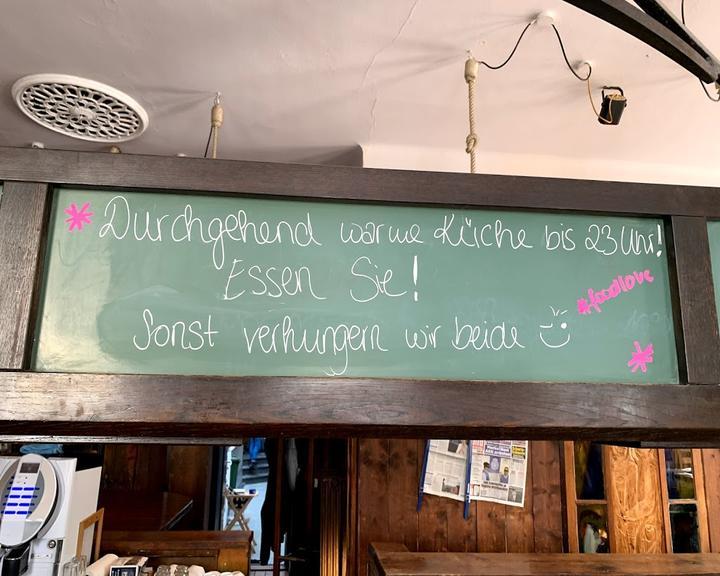 Durchgehend warme Küche bis 23 Uhr!
Essen Sie!
#foodlove
Sonst verhungern wir beide